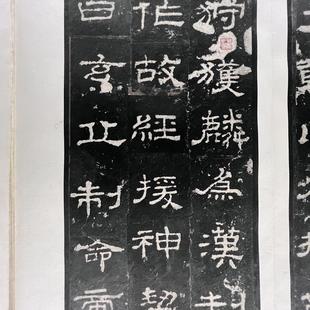 狩獲麟爲漢制
作故經援神挈
曰玄丘制命帝